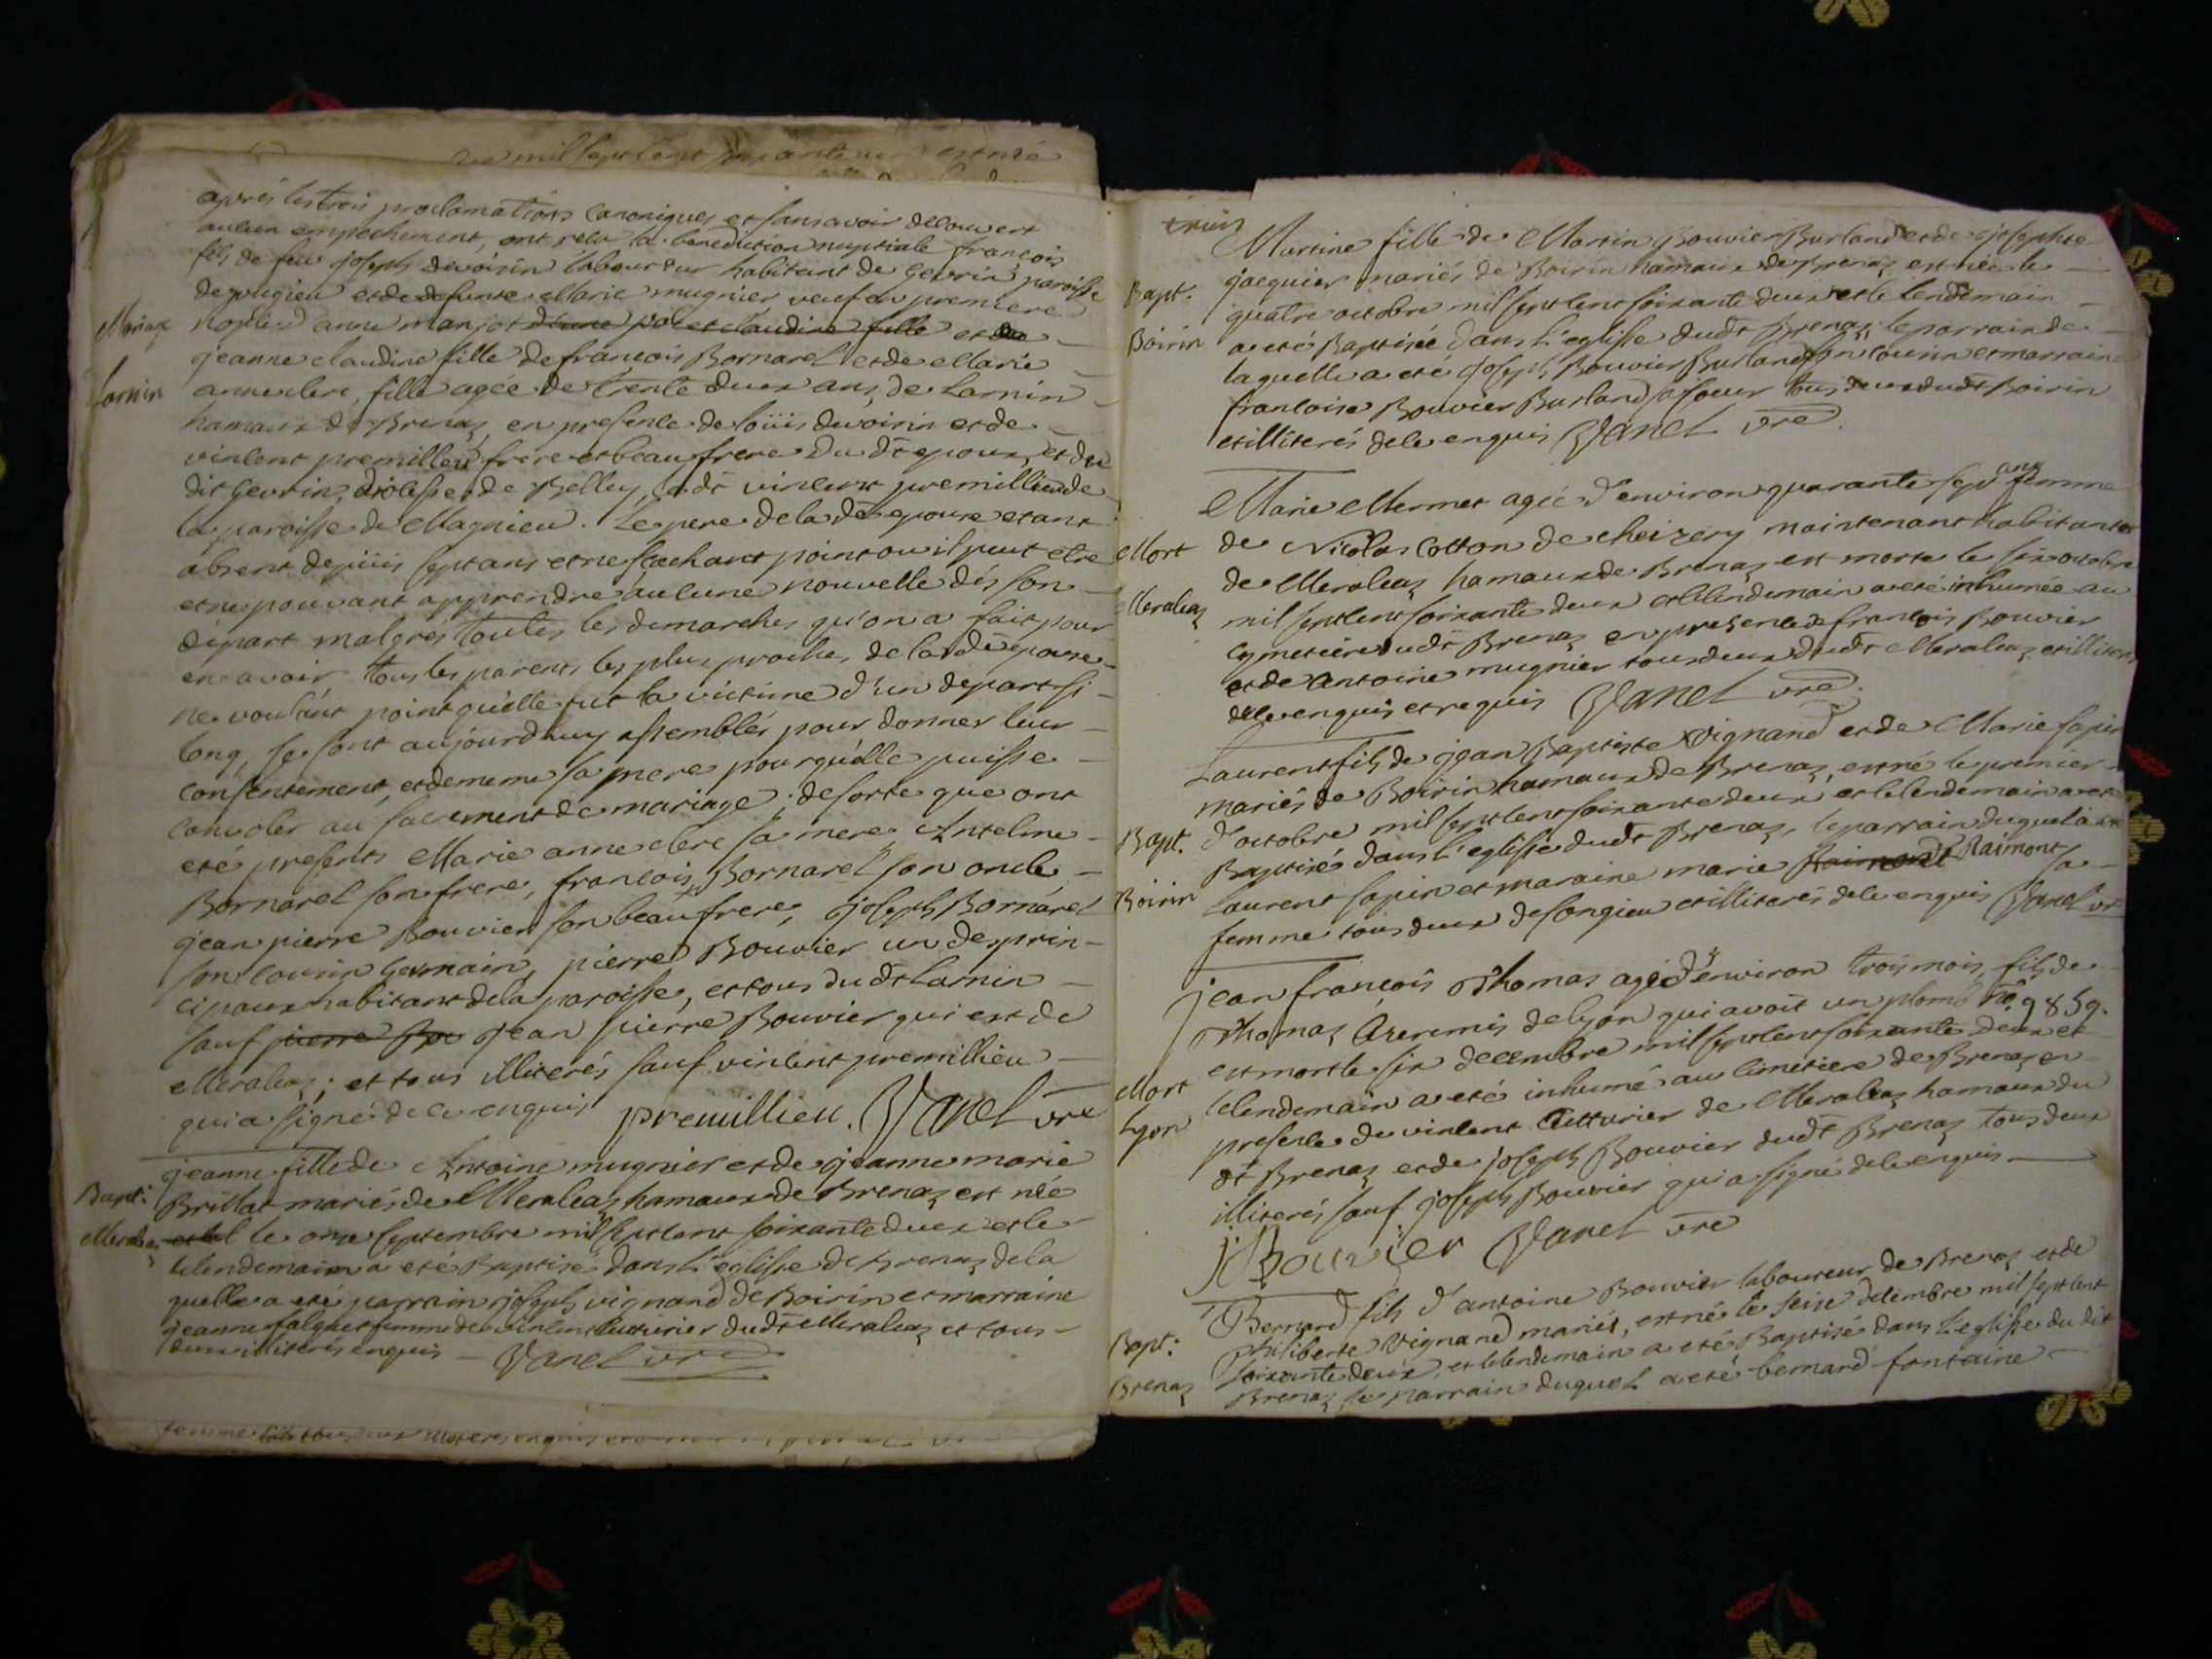 de mil sept cent soixante un est née
après les trois proclamations canoniques et sans avoir decouvert
aucun empechement, ont reçu la benediction nuptiale françois
fils de feu joseph devoisin laboureur habitant de Gevrin paroisse
de pugieu et de defunte Marie mugnier veuf en premiere
Mariage
noples d'anne manjot
jeanne claudine fille de francois Bornarel et de Marie
Larnin
anne clere, fille agée de trente deux ans, de Larnin
hamaux de Brenaz, en presence de loüis devoisin et de
vincent premillieu frere et beau frere du dt epoux, et du
dit Gevrin, diocesse de Belley, ledt vincent premillieu de
la paroisse de Magnieu. Le pere de la dte epouse etant
absent depuis sept ans et ne sçachant point ou il peut etre
et ne pouvant apprendre aucune nouvelle dés son
départ malgrés toutes les demarches qu'on a fait pour
en avoir tous les parents les plus proches de la dte epouse
ne voulant point qu'elle fut la victime d'un depart si
long, se sont aujourdhuy assemblés pour donner leur
consentement, et de meme sa mere pour qu'elle puisse
convoler au sacrement de mariage; de sorte que ont
eté presents Marie anne clere sa mere, Antelme
Bornarel son frere, francois Bornarel son oncle
jean pierre Bouvier son beau frere, joseph Bornarel
son cousin Germain, pierre Bouvier un des prin-
cipaux habitant de la paroisse, et tous du dt Larnin
sauf pierre jean pierre Bouvier qui est de
Meraleaz; et tous illiterés sauf vincent premillieu
qui a signé de ce enquis premillieu. Vanel vre
jeanne fille de Antoine mugnier et de jeanne marie
Bapt:
Brillat mariés de Meraleaz hamaux de Brenaz est née
Meraleaz
le onze septembre mil sept cent soixante deux et le
lelendemain a eté Baptisé dans L'eglisse de Brenaz de la
quelle a eté parrain joseph vignand de Boirin et marraine
jeanne falquet femme de vincent Cutturier dudt Meraleaz et tous
deux illiterés enquis Vanel vre
femme
Martine fille de Martin Bouvier Burland et de josephte
Bapt.
jacquier mariés de Boirin hamaux de Brenaz est née le
quatre octobre mil sept cent soixante deux et le lendemain
Boirin
a eté Baptisée dans L'eglisse dudt Brenaz; le parrain de
laquelle a eté joseph Bouvier Burland son cousin et marraine
francoise Bouvier Burland sa soeur tous deux dudt Boirin
et illiterés de ce enquis Vanel vre.
Marie Mermet agée d'environ quarante sept ans femme
Mort
de Nicolas Cotton de cheizery maintenant habitante
Meraleaz
de Meraleaz hamaux de Brenaz est morte le six octobre
mil sept cent soixante deux et lelendemain a eté inhumée au
cymetiere dudt Brenaz en presence de francois Bouvier
et de Antoine mugnier tous deux dudt Meraleaz et illiterés
de ce enquis et requis Vanel vre.
Laurent fils de jean Baptiste vignand et de Marie sapin
mariés de Boirin hamaux de Brenaz, est né le premier
Bapt.
d'octobre mil sept cent soixante deux et lelendemain a eté
Baptisé dans l'eglisse dudt Brenaz, le parrain duquel a eté
Boirin
Laurent sapin et maraine marie Raimont sa
femme tous deux de songieu et illiterés de ce enquis Vanel vre
jean françois Thomas agé d'environ trois mois, fils de
Thomas, de lyon qui avoit un plomb no. 9859.
est mort le six decembre mil sept cent soixante deux et
Mort
lelendemain a eté inhumé au cimetiere de Brenaz en
Lyon
presence de vincent Cutturier de Meraleaz hamaux du
dt Brenaz et de joseph Bouvier dudt Brenaz tous deux
illiterés sauf joseph Bouvier qui a signé de ce enquis
j Bouvier Vanel vre
Bernard fils d'antoine Bouvier laboureur de Brenaz et de
Bapt:
Philiberte vignand mariés, est né le seise decembre mil sept cent
soixante deux, et lelendemain a eté Baptisé dans L'eglisse du dit
Brenaz
Brenaz, le parrain duquel a eté bernard fontaine